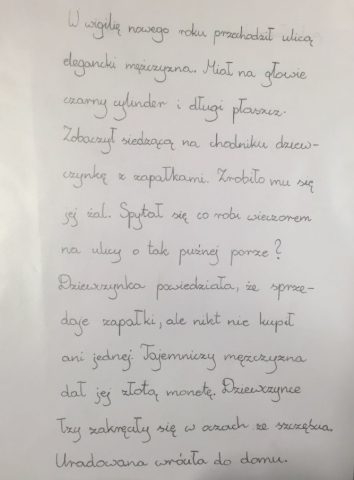 W wigilię nowego roku przechodził ulicą
elegancki mężczyzna. Miał na głowie
czarny cylinder i długi płaszcz.
Zobaczył siedzącą na chodniku dziew-
czynkę z zapałkami. Zrobiło mu się
jej żal. Spytał się co robi wieczorem
na ulicy o tak puźnej porze?
Dziewczynka powiedziała, że sprze-
daje zapałki, ale nikt nie kupił
ani jednej. Tajemniczy mężczyzna
dał jej złotą monetę. Dziewczynce
łzy zakręciły się w oczach ze szczęścia.
Uradowana wróciła do domu.